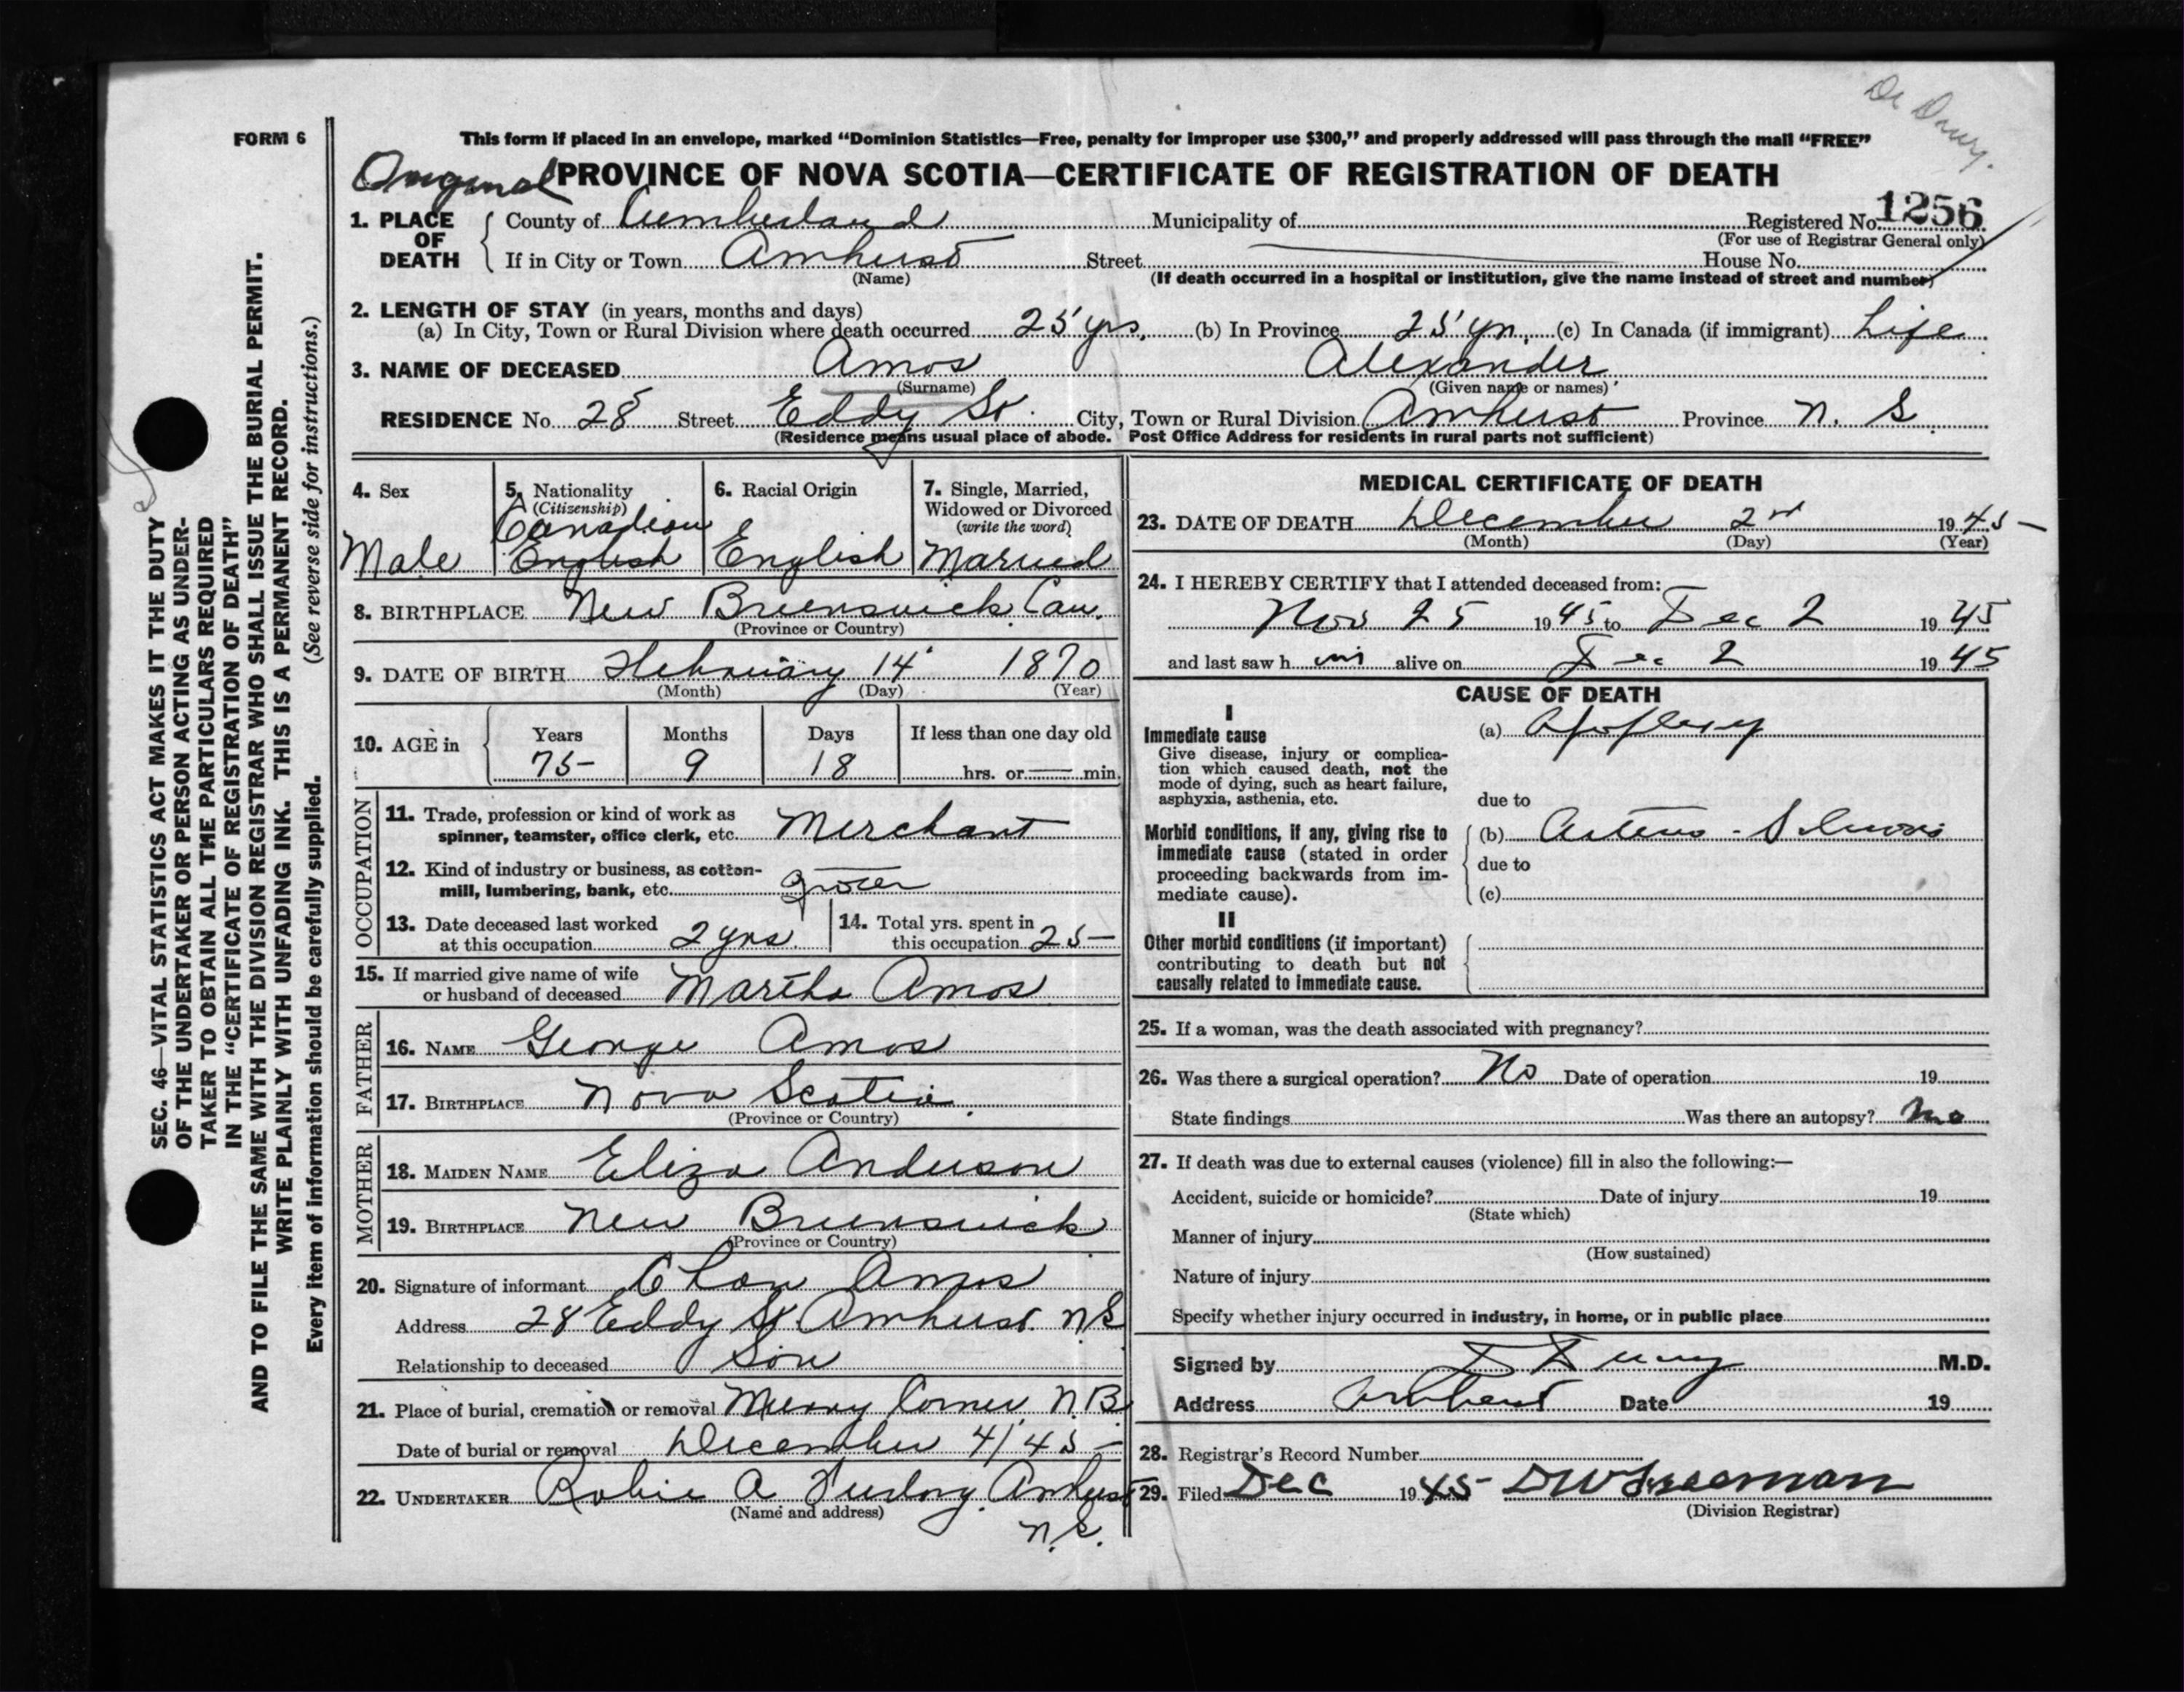 Dr Drury.
FORM 6
This form if placed in an envelope, marked “Dominion Statistics—Free, penalty for improper use $300,” and properly addressed will pass through the mail “FREE”
Original PROVINCE OF NOVA SCOTIA—CERTIFICATE OF REGISTRATION OF DEATH
1. PLACE OF DEATH { County of Cumberland Municipality of Registered No. 1256
(For use of Registrar General only)
If in City or Town Amherst Street House No.
(Name) (If death occurred in a hospital or institution, give the name instead of street and number)
2. LENGTH OF STAY (in years, months and days)
(a) In City, Town or Rural Division where death occurred 25 yrs. (b) In Province 25 yr. (c) In Canada (if immigrant) Life
3. NAME OF DECEASED Amos Alexander
(Surname) (Given name or names)
RESIDENCE No. 28 Street Eddy St. City, Town or Rural Division Amherst Province N. S.
(Residence means usual place of abode. Post Office Address for residents in rural parts not sufficient)
4. Sex
Male
5. Nationality
(Citizenship)
Canadian
English
6. Racial Origin
English
7. Single, Married,
Widowed or Divorced
(write the word)
Married
8. BIRTHPLACE New Brunswick Can.
(Province or Country)
9. DATE OF BIRTH February 14 1870
(Month) (Day) (Year)
10. AGE in { Years Months Days If less than one day old
75 9 18 hrs. or min.
OCCUPATION
11. Trade, profession or kind of work as
spinner, teamster, office clerk, etc. Merchant
12. Kind of industry or business, as cotton-
mill, lumbering, bank, etc. Grocer
13. Date deceased last worked
at this occupation 2 yrs.
14. Total yrs. spent in
this occupation 25
15. If married give name of wife
or husband of deceased Martha Amos
FATHER
16. NAME George Amos
17. BIRTHPLACE Nova Scotia.
(Province or Country)
MOTHER
18. MAIDEN NAME Eliza Anderson
19. BIRTHPLACE New Brunswick
(Province or Country)
20. Signature of informant Amos
Address 28 Eddy St. Amherst. N.S.
Relationship to deceased Son
21. Place of burial, cremation or removal Murray Corner N.B.
Date of burial or removal December 4/45
22. UNDERTAKER Robie A Furlong. Amherst
(Name and address)
N.S.
MEDICAL CERTIFICATE OF DEATH
23. DATE OF DEATH December 2nd 1945
(Month) (Day) (Year)
24. I HEREBY CERTIFY that I attended deceased from:
Nov 25 1945 to Dec 2 1945
and last saw him alive on Dec 2 1945
CAUSE OF DEATH
I
Immediate cause
Give disease, injury or complica-
tion which caused death, not the
mode of dying, such as heart failure,
asphyxia, asthenia, etc.
(a) Apoplexy
due to
Morbid conditions, if any, giving rise to
immediate cause (stated in order
proceeding backwards from im-
mediate cause).
(b) Arterio - Sclerosis
due to
(c)
II
Other morbid conditions (if important)
contributing to death but not
causally related to immediate cause.
25. If a woman, was the death associated with pregnancy?
26. Was there a surgical operation? No Date of operation 19
State findings Was there an autopsy? no
27. If death was due to external causes (violence) fill in also the following:—
Accident, suicide or homicide? Date of injury 19
(State which)
Manner of injury
(How sustained)
Nature of injury
Specify whether injury occurred in industry, in home, or in public place
Signed by D Drury M.D.
Address Amherst Date 19
28. Registrar’s Record Number
29. Filed Dec 1945 DW Freeman
(Division Registrar)
SEC. 46—VITAL STATISTICS ACT MAKES IT THE DUTY
OF THE UNDERTAKER OR PERSON ACTING AS UNDER-
TAKER TO OBTAIN ALL THE PARTICULARS REQUIRED
IN THE “CERTIFICATE OF REGISTRATION OF DEATH”
AND TO FILE THE SAME WITH THE DIVISION REGISTRAR WHO SHALL ISSUE THE BURIAL PERMIT.
WRITE PLAINLY WITH UNFADING INK. THIS IS A PERMANENT RECORD.
Every item of information should be carefully supplied. (See reverse side for instructions.)